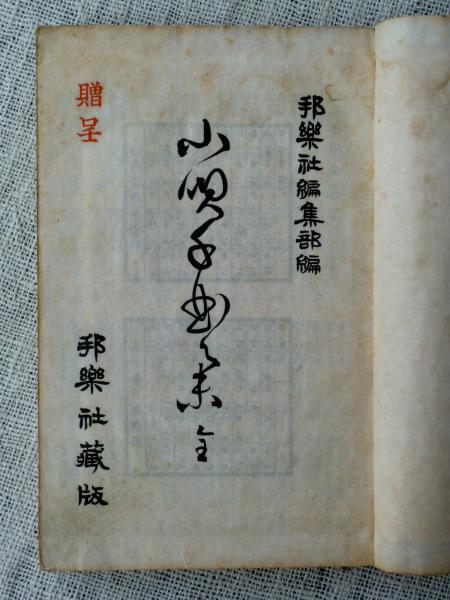 邦樂社編集部編
小唄千曲集 全
贈呈
邦樂社藏版